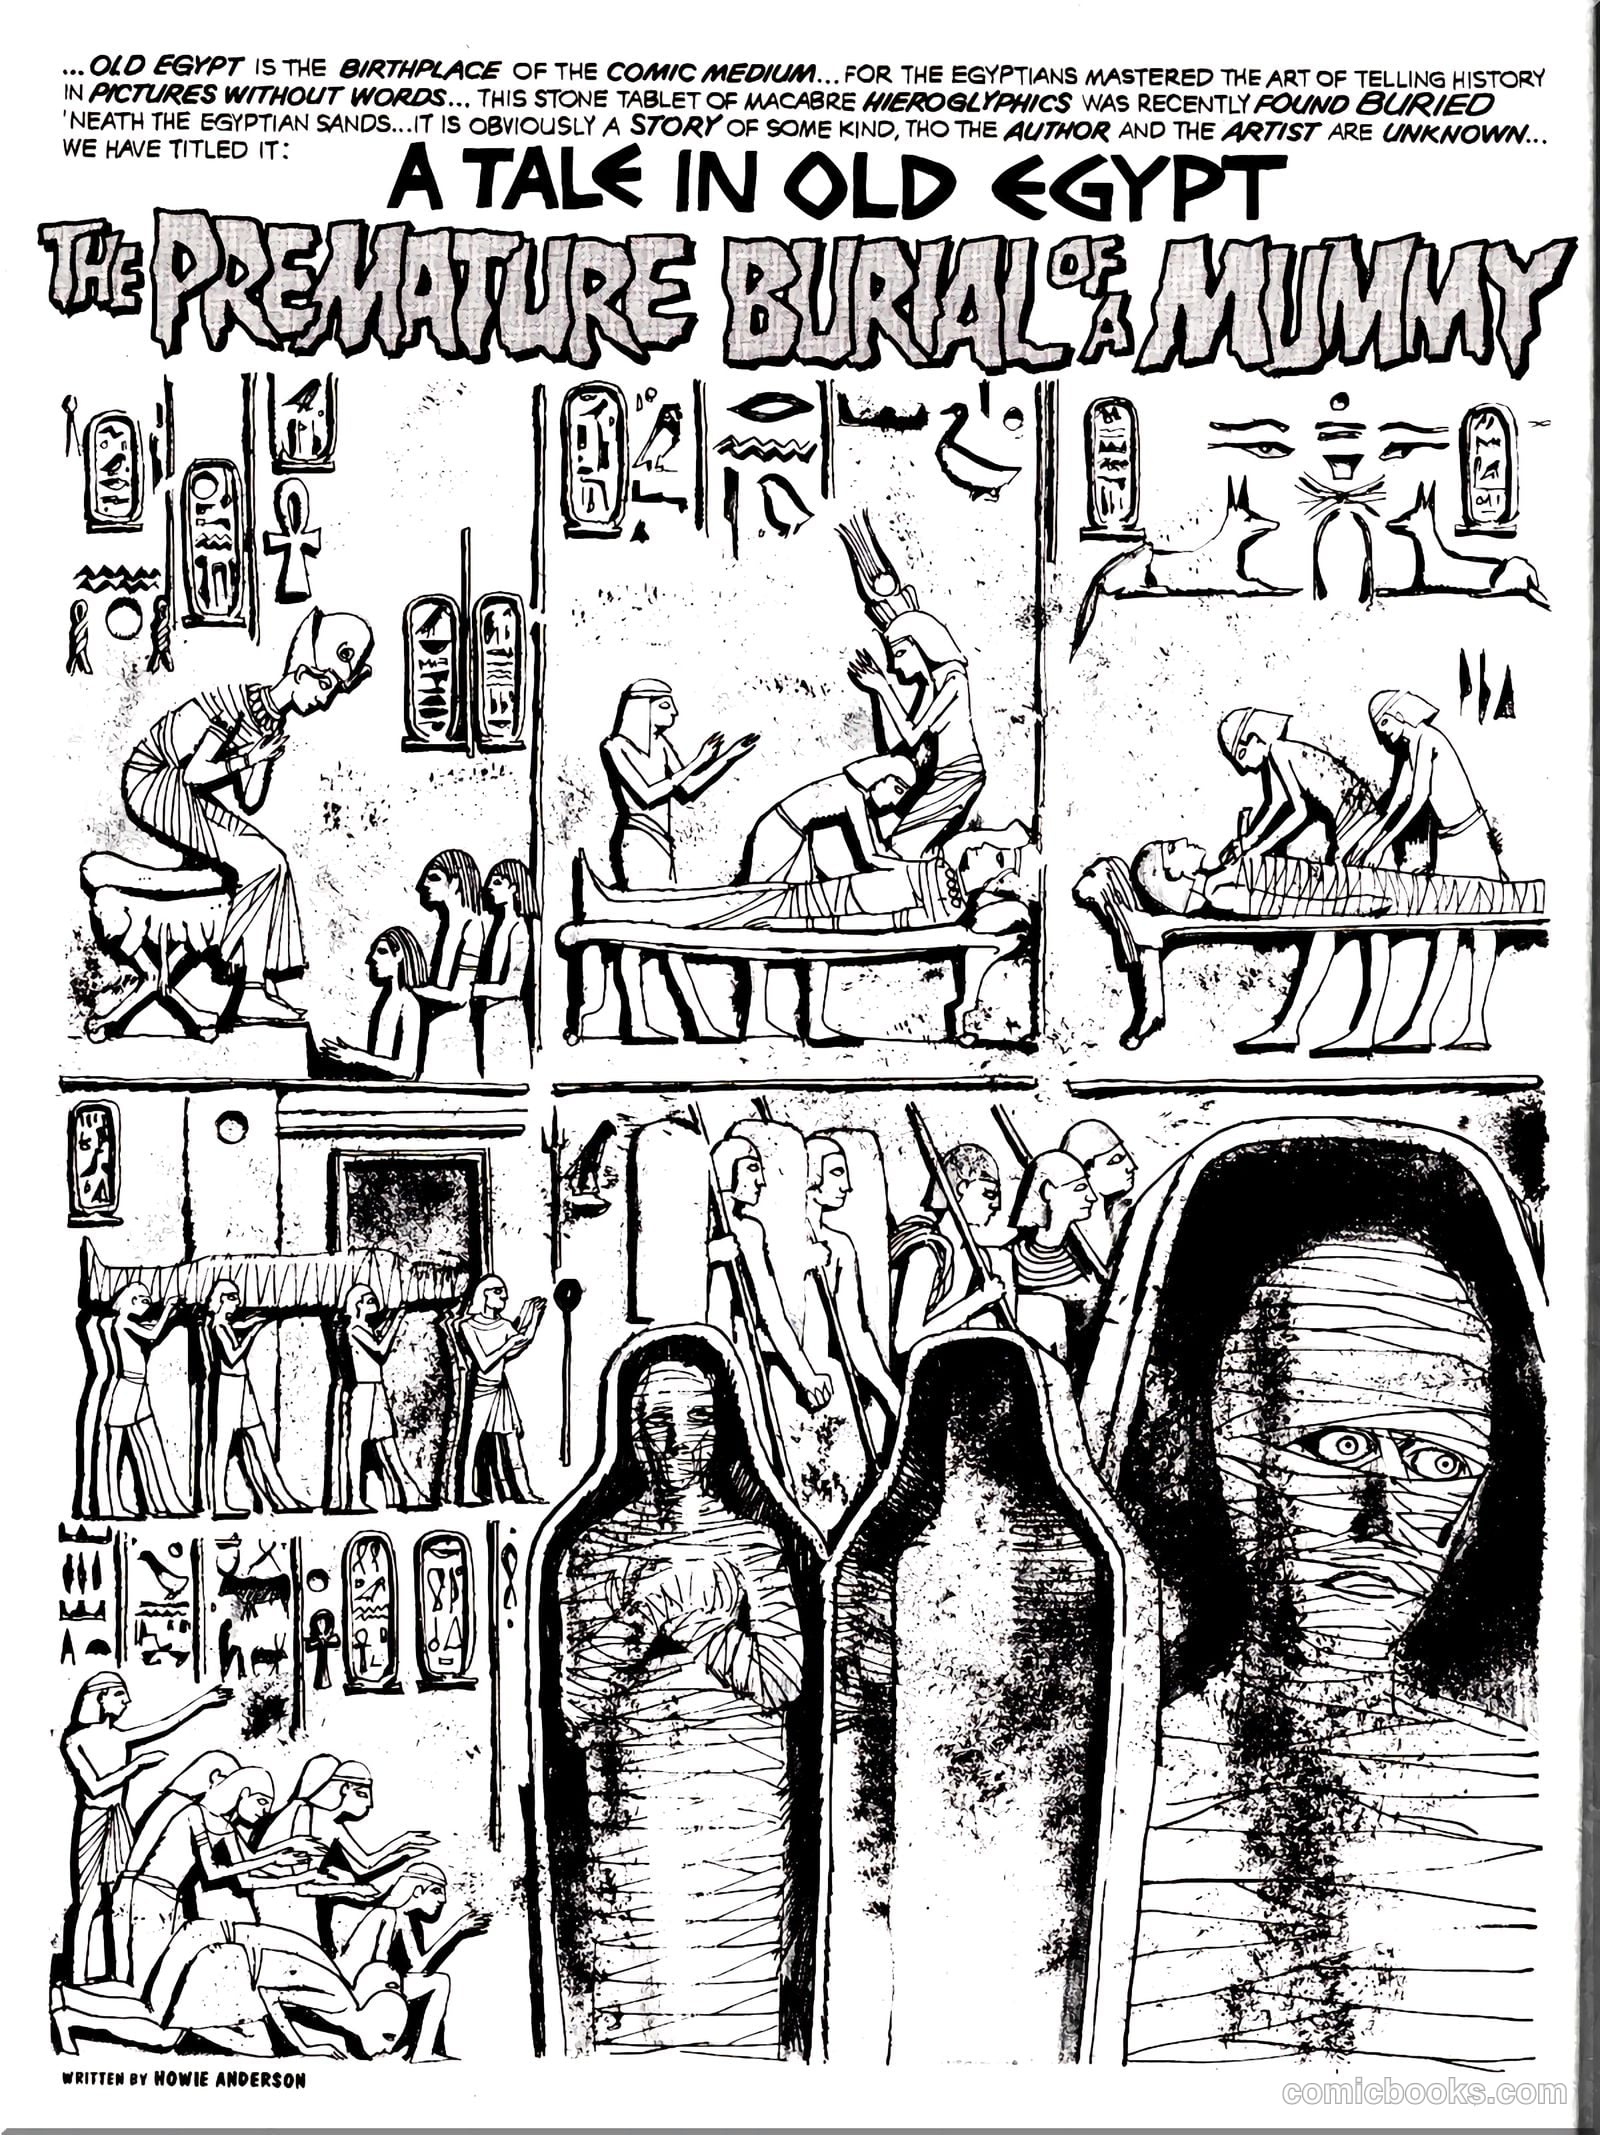 ...OLD EGYPT IS THE BIRTHPLACE OF THE COMIC MEDIUM... FOR THE EGYPTIANS MASTERED THE ART OF TELLING HISTORY
IN PICTURES WITHOUT WORDS... THIS STONE TABLET OF MACABRE HIEROGLYPHICS WAS RECENTLY FOUND BURIED
'NEATH THE EGYPTIAN SANDS...IT IS OBVIOUSLY A STORY OF SOME KIND, THO THE AUTHOR AND THE ARTIST ARE UNKNOWN...
WE HAVE TITLED IT:
A TALE IN OLD EGYPT
THE PREMATURE BURIAL OF A MUMMY
WRITTEN BY HOWIE ANDERSON
comicbooks.com